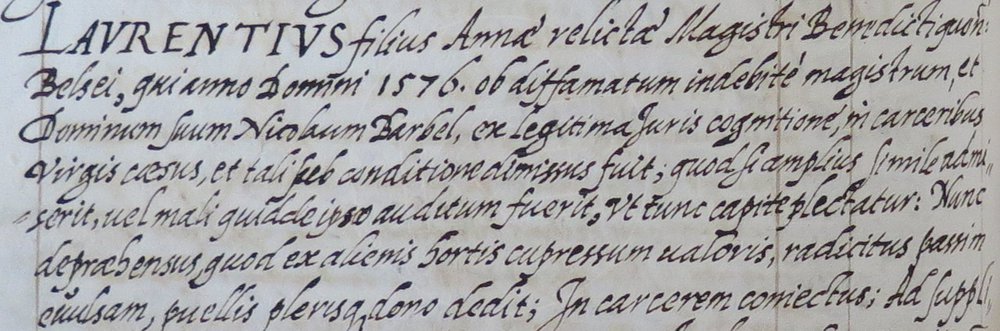 LAVRENTIVS filius Annæ relictæ Magistri Benedicti quon:
Belsei, qui anno Domini 1576. ob diffamatum indebitè magistrum, et
Dominum suum Nicolaum Barbel, ex legitima Juris cognitione, in carceribus
Virgis cæsus, et tali sub conditione dimissus fuit; quod si amplius simile admi,
serit, uel mali quid de ipso auditum fuerit, Vt tunc capite plectatur: Nunc
depræhensus, quod ex alienis hortis cupressum ualoris, radicitus passim
euulsam, puellis plerisq, dono dedit; In carcerem coniectus; Ad suppli,